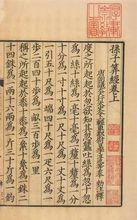 孫子算經卷上
度之所起起於忽欲知其忽蠶吐絲爲忽十忽
爲一絲十絲爲一毫十毫爲一氂十氂爲一分
十分爲一寸十寸爲一尺十尺爲一丈十丈爲
一引五十尺爲一端四十尺爲一疋六尺爲一
步二百四十步爲一畝三百步爲一里
稱之所起起於黍十黍爲一絫十絫爲一銖二
十四銖爲一兩十六兩爲一斤三十斤爲一鈞